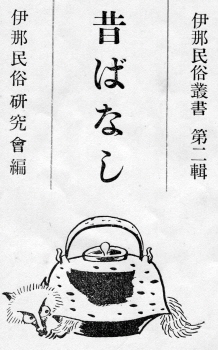 伊那民俗叢書 第二輯
昔ばなし
伊那民俗研究會編